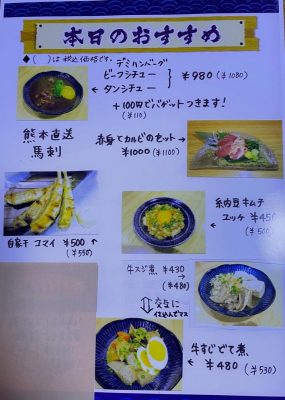 本日のおすすめ
◆( )は税込価格です。
デミハンバーグ
ビーフシチュー
タンシチュー
¥980 (¥1080)
+100円でバゲットつきます!
(¥110)
熊本直送
馬刺
赤身とカルビのセット
¥1000 (¥1100)
自家干 コマイ ¥500
(¥550)
納豆キムチ
ユッケ ¥450
(¥500)
牛スジ煮 ¥430
(¥480)
交互に
仕込んでマス
牛すじどて煮
¥480 (¥530)